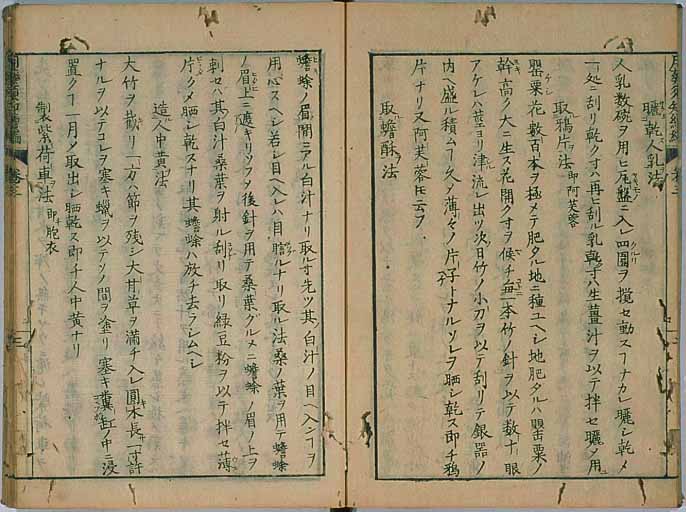 曬乾人乳法
人乳数碗ヲ用ヒ瓦盤ニ入レ四圍ヲ撹セ動スヿナカレ曬シ乾メ
一処ニ刮リ乾クオハ再ヒ刮ル乳乾オハ生薑汁ヲ以テ拌セ曬メ用
取鴉片法 即阿芙蓉
罌粟花数百本ヲ極メテ肥タル地ニ種ユヘシ地肥タルハ罌粟ノ
幹高ク大ニ生ス花開クオヲ候チ毎一本竹ノ針ヲ以テ数十眼
アケレハ莖ヨリ津流レ出ツ次日竹ノ小刀ヲ以テ刮リテ銀器ノ
内ヘ盛ル積ムヿ久メ薄キノ片子トナルソレヲ晒シ乾ス即チ鴉
片ナリ又阿芙蓉トモ云フ
取蟾酥法
蟾蜍ノ眉間ニアル白汁ナリ取ルオ先ツ其白汁ノ目ヘ入ンヿヲ
用心スヘシ若シ目ヘ入レハ目瞎ルナリ取ル法桑ノ葉ヲ用テ蟾蜍
ノ眉上ニ遮キリフタ後針ヲ用テ桑葉グルメニ蟾蜍ノ眉ノ上ヲ
刺セハ其白汁桑葉ヲ射ル刮リ取リ緑豆粉ヲ以テ拌セ薄
片クメ晒シ乾スナリ其蟾蜍ハ放チ去ラシムヘシ
造人中黄法
大竹ヲ截リ一方ハ節ヲ残シ大甘草ヲ満チ入レ圓木長一寸許
ナルヲ以テコレヲ塞キ蝋ヲ以テソノ間ヲ塗リ塞キ糞缸ノ中ニ浸
置クヿ一月メ取出シ晒乾ス即チ人中黄ナリ
製紫荷車法 即胞衣